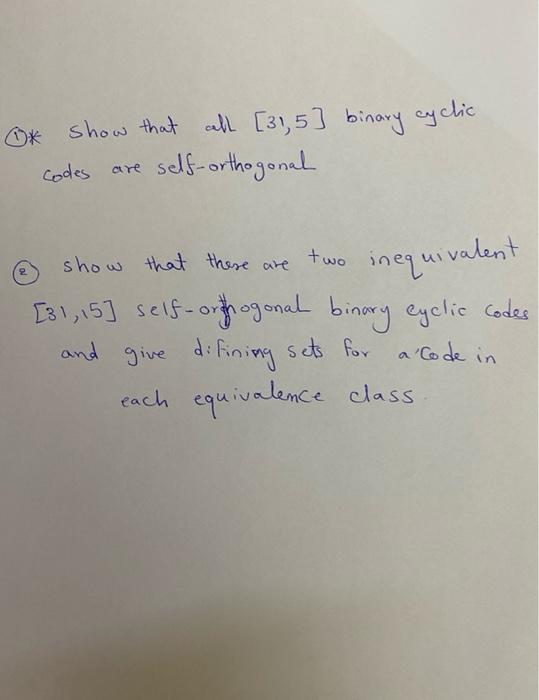 ①* show that all [31,5] binary cyclic
codes are self-orthogonal
② show that there are two inequivalent
[31,15] self-orthogonal binary cyclic codes
and give difining sets for a code in
each equivalence class.